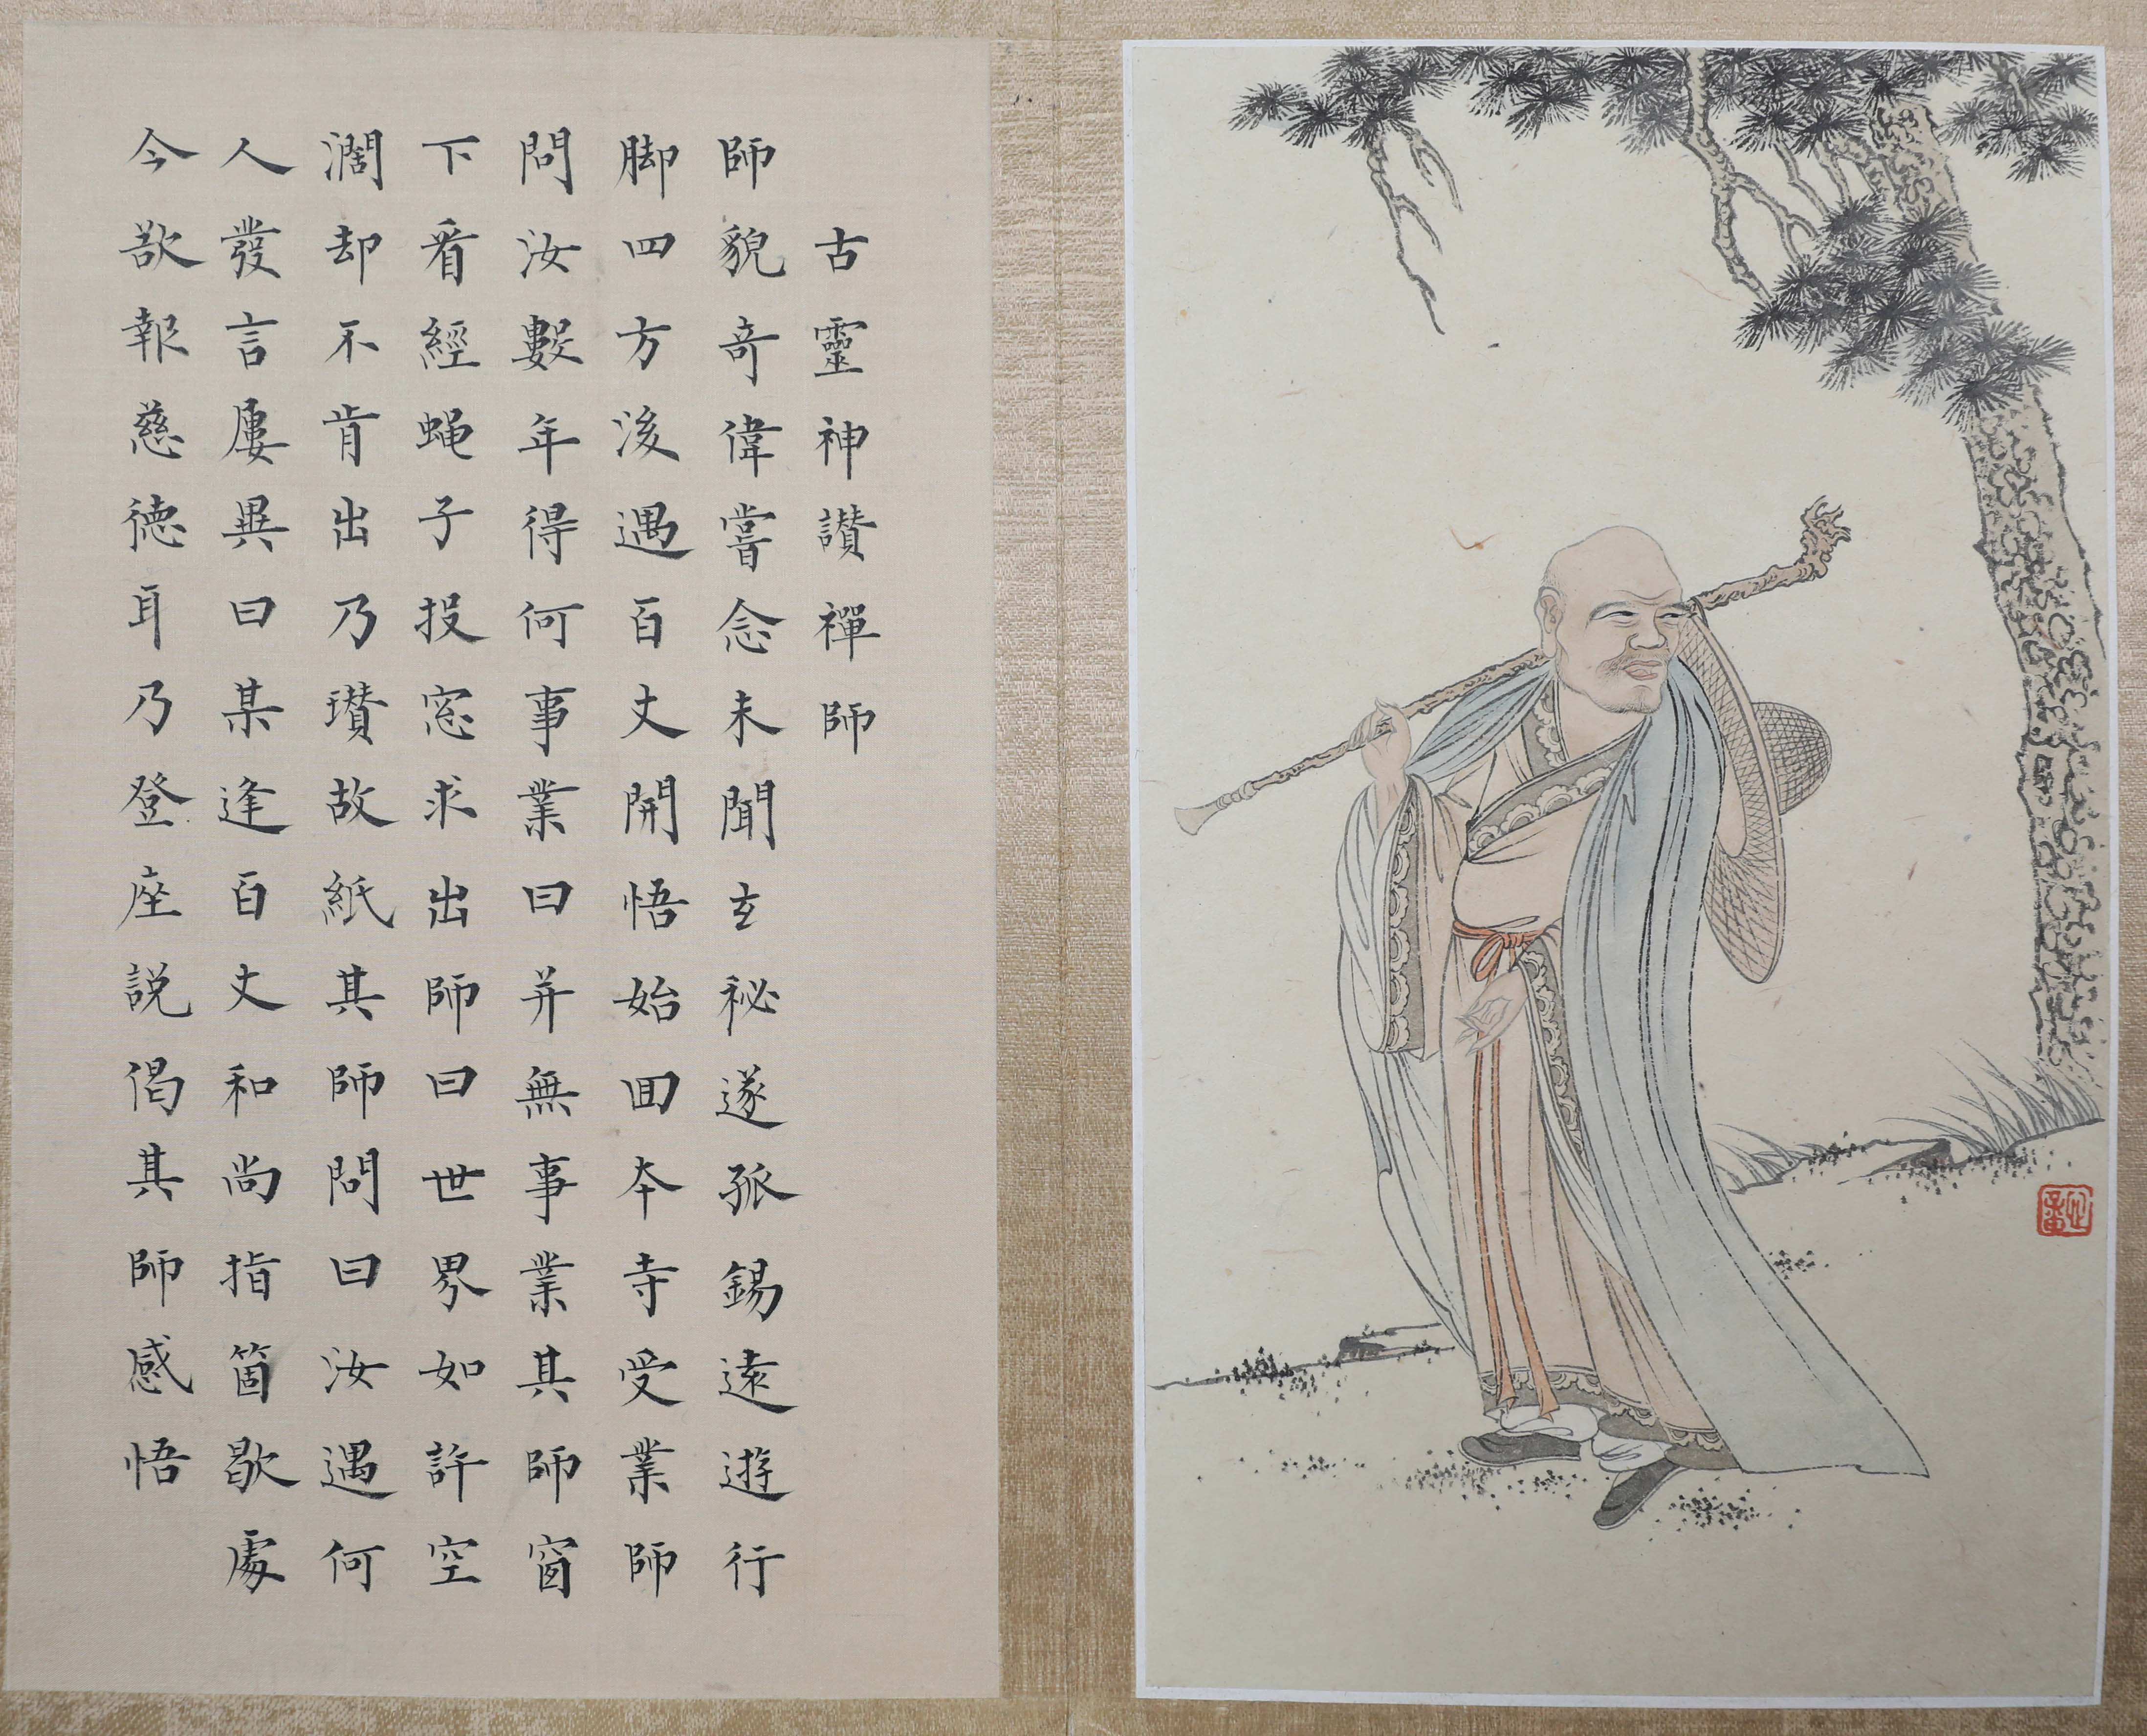 古靈神讃禪師
師貌奇偉嘗念未聞玄祕遂孤錫遠遊行
脚四方後遇百丈開悟始回本寺受業師
問汝數年得何事業曰并無事業其師窗
下看經蝇子投窓求出師曰世界如許空
濶却不肯出乃瓉故紙其師問曰汝遇何
人發言屢異曰某逢百丈和尚指箇歇處
今欲報慈德耳乃登座説偈其師感悟